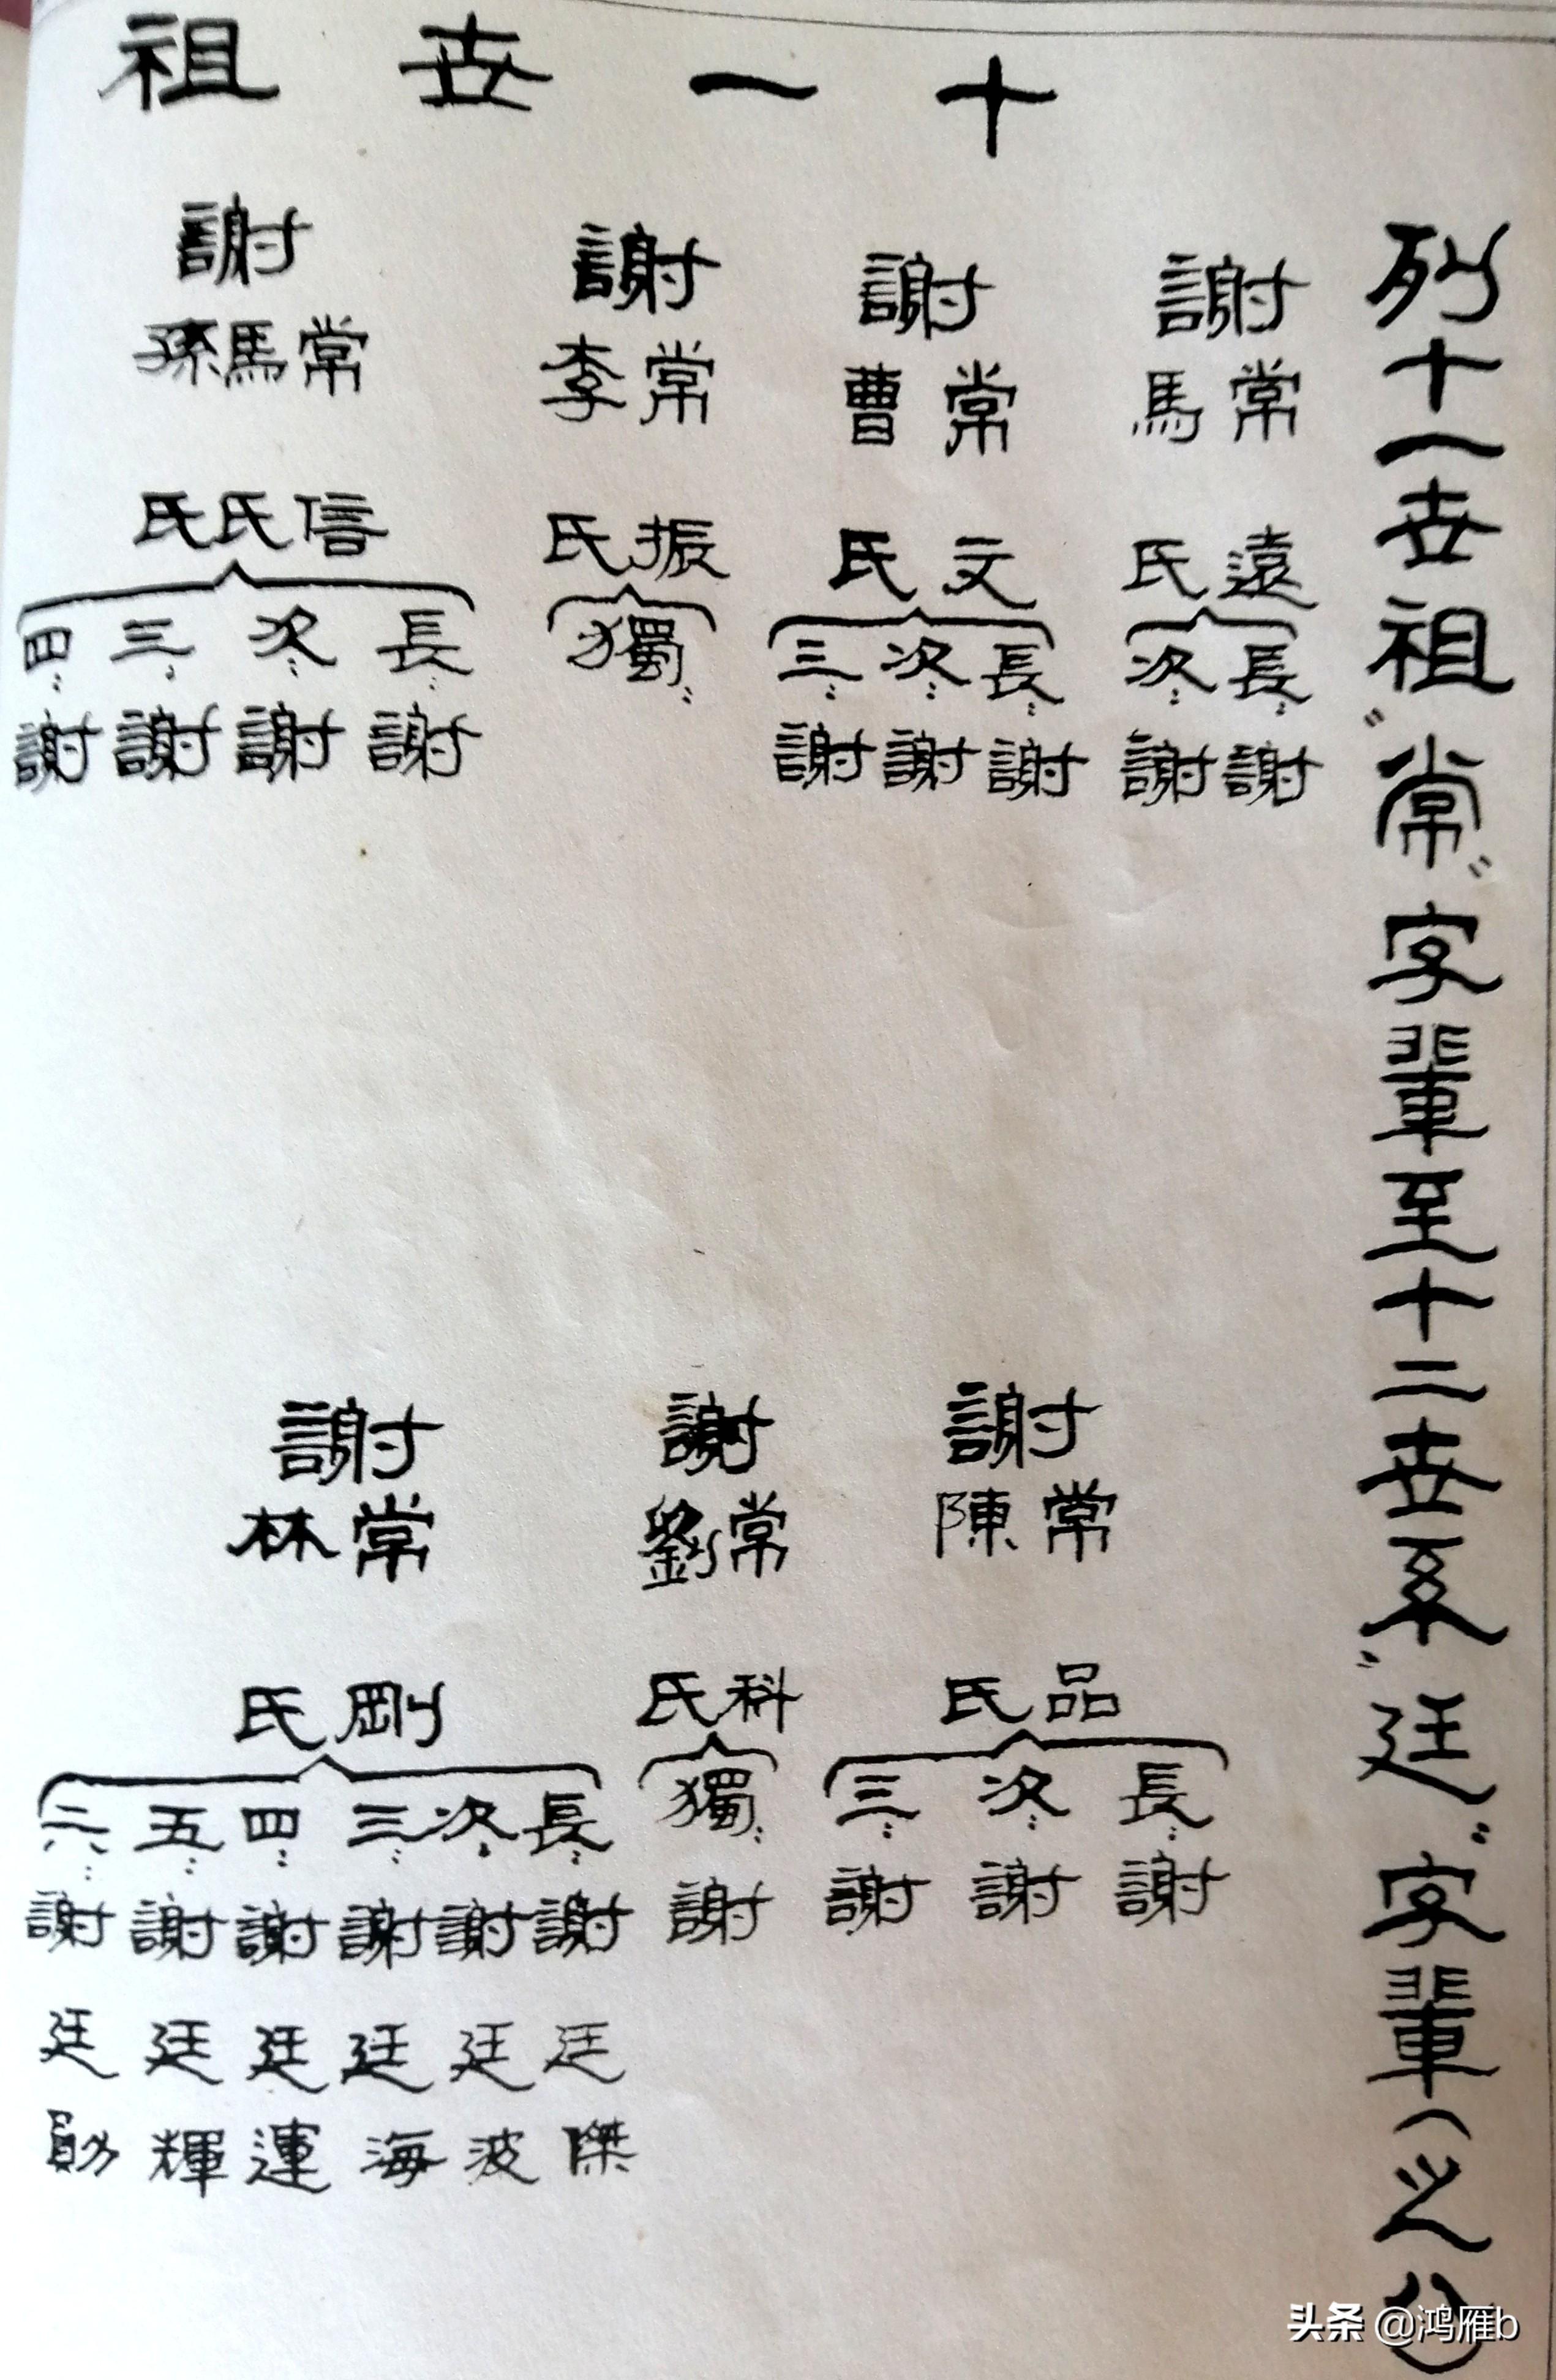 列十一世祖“常”字輩至十二世系“廷”字輩(之八)
十一世祖
謝常遠
馬氏
長:謝
次:謝
謝常文
曹氏
長:謝
次:謝
三:謝
謝常振
李氏
獨:
謝常信
馬氏
孫氏
長:謝
次:謝
三:謝
四:謝
謝常品
陳氏
長:謝
次:謝
三:謝
謝常科
劉氏
獨:謝
謝常剛
林氏
長:謝廷傑
次:謝廷波
三:謝廷海
四:謝廷運
五:謝廷輝
六:謝廷
头条 @鸿雁b